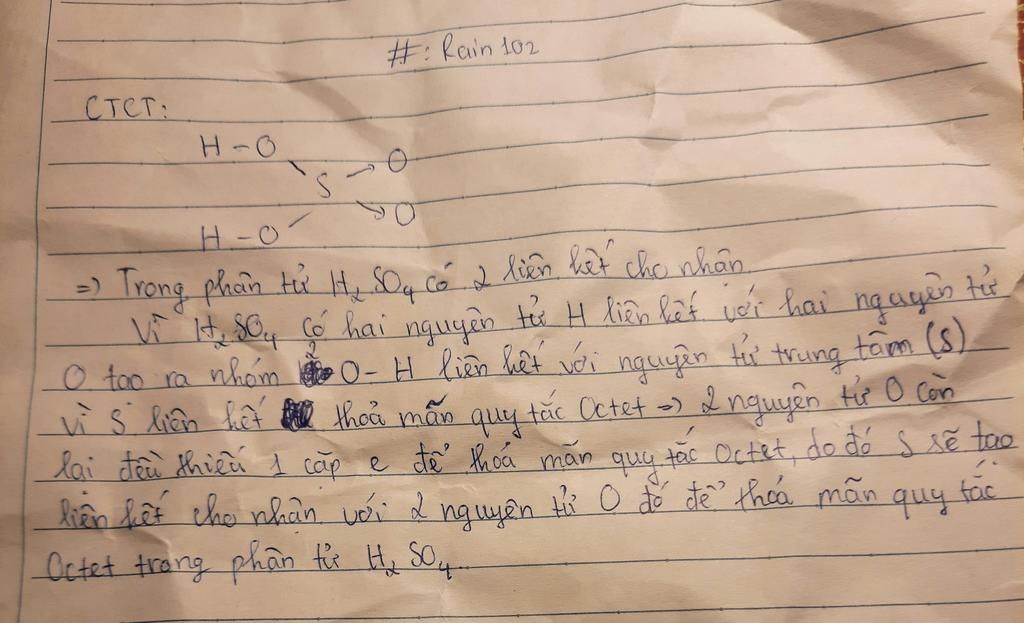 #: Rain102
CTCT:
H - O
S → O
→ O
H - O
=> Trong phân tử H₂SO₄ có 2 liên kết cho nhân
Vì H₂SO₄ có hai nguyên tử H liên kết với hai nguyên tử
O tao ra nhóm 2 O - H liên kết với nguyên tử trung tâm (S)
vì S liên kết thoả mãn quy tắc Octet => 2 nguyên tử O còn
lại đều thiếu 1 cặp e để thoả mãn quy tắc Octet, do đó S sẽ tao
liên kết cho nhân với 2 nguyên tử O đó để thoả mãn quy tắc
Octet trong phân tử H₂SO₄.